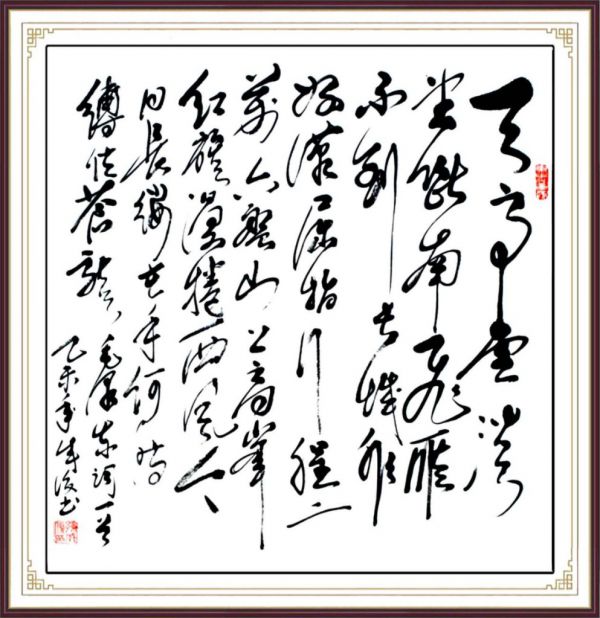 天高雲淡
望斷南飛雁
不到長城非
好漢屈指行程二
萬六盤山上高峰
紅旗漫捲西風今
日長纓在手何時
縛住蒼龍 毛澤東詞一首
乙未年書